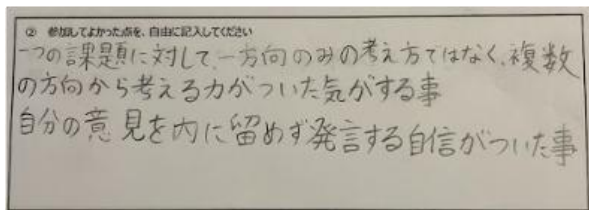 ② 参加してよかった点を、自由に記入してください
一つの課題に対して、一方向のみの考え方ではなく、複数
の方向から考える力がついた気がする事
自分の意見を内に留めず発言する自信がついた事